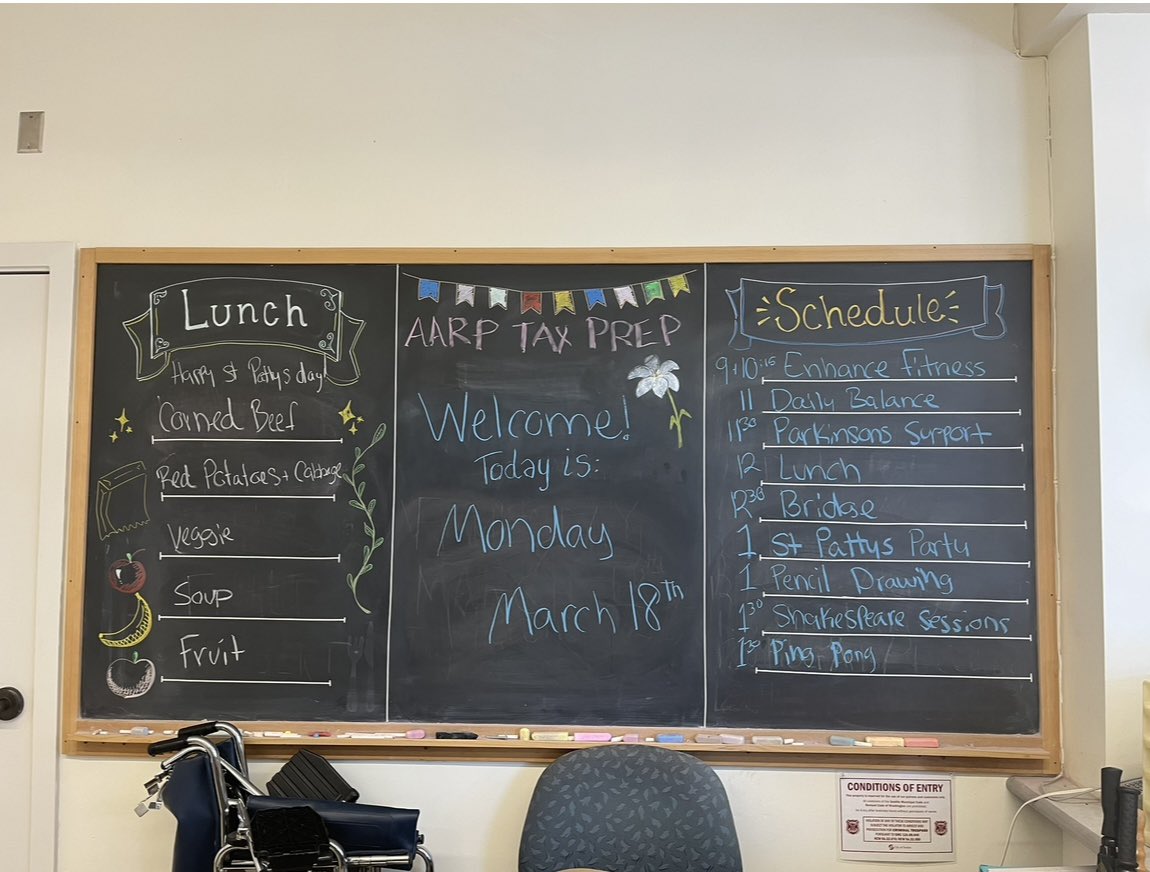 Lunch
Happy St Pattys day!
Corned Beef
Red Potatoes + Cabbage
Veggie
Soup
Fruit
AARP TAX PREP
Welcome!
Today is:
Monday
March 18th
Schedule
9+10:15 Enhance Fitness
11 Daily Balance
11:30 Parkinsons Support
12 Lunch
12:30 Bridge
1 St Pattys Party
1 Pencil Drawing
1:30 Shakespeare Sessions
1:30 Ping Pong
CONDITIONS OF ENTRY